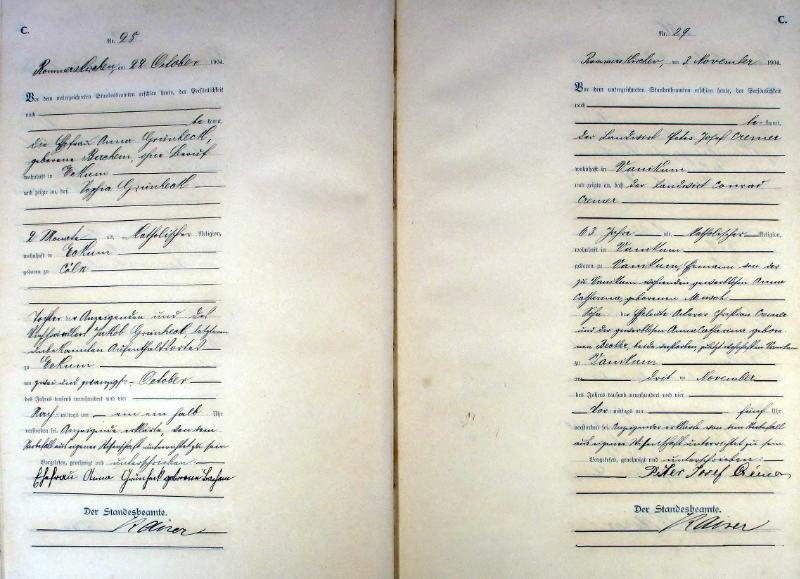 C.
Nr. 28
Rommerskirchen, am 22 October 1904.
Vor dem unterzeichneten Standesbeamten erschien heute, der Persönlichkeit
nach
be kannt,
die Ehefrau Anna Grünheck,
geborene Bachem, ohne Beruf
wohnhaft in Eckum
und zeigte an, daß Sophia Grünheck
2 Monate alt, katholischer Religion,
wohnhaft in Eckum
geboren zu Cöln
Tochter der Anzeigenden und des
Jakob Grünheck letzterer
unbekannten Aufenthaltsortes
zu Eckum
am zwei und zwanzigsten October
des Jahres tausend neunhundert und vier
Nach mittags um ein ein halb Uhr
verstorben sei. Anzeigende erklärte von dem
Sterbefall aus eigener Wissenschaft unterrichtet zu sein
Vorgelesen, genehmigt und unterschrieben
Ehefrau Anna Grünheck geborene Bachem
Der Standesbeamte.
Kaiser
C.
Nr. 29
Rommerskirchen, am 3 November 1904.
Vor dem unterzeichneten Standesbeamten erschien heute, der Persönlichkeit
nach
be kannt,
der Landwirt Peter Josef Cremer
wohnhaft in Vanikum
und zeigte an, daß der Landwirt Conrad
Cremer
63 Jahre alt, katholischer Religion,
wohnhaft in Vanikum
geboren zu Vanikum, Ehemann von der
zu Vanikum wohnenden gewerblosen Anna
Catharina, geborenen Müsch
Sohn der Eheleute Ackerer Christian Cremer
und der gewerblosen Anna Catharina gebore-
nen, beide verstorben, zuletzt wohnhaft in Vanikum
zu Vanikum
am dritten November
des Jahres tausend neunhundert und vier
Vor mittags um fünf Uhr
verstorben sei. Anzeigender erklärte von dem Sterbefall
aus eigener Wissenschaft unterrichtet zu sein
Vorgelesen, genehmigt und unterschrieben:
Peter Josef Cremer
Der Standesbeamte.
Kaiser